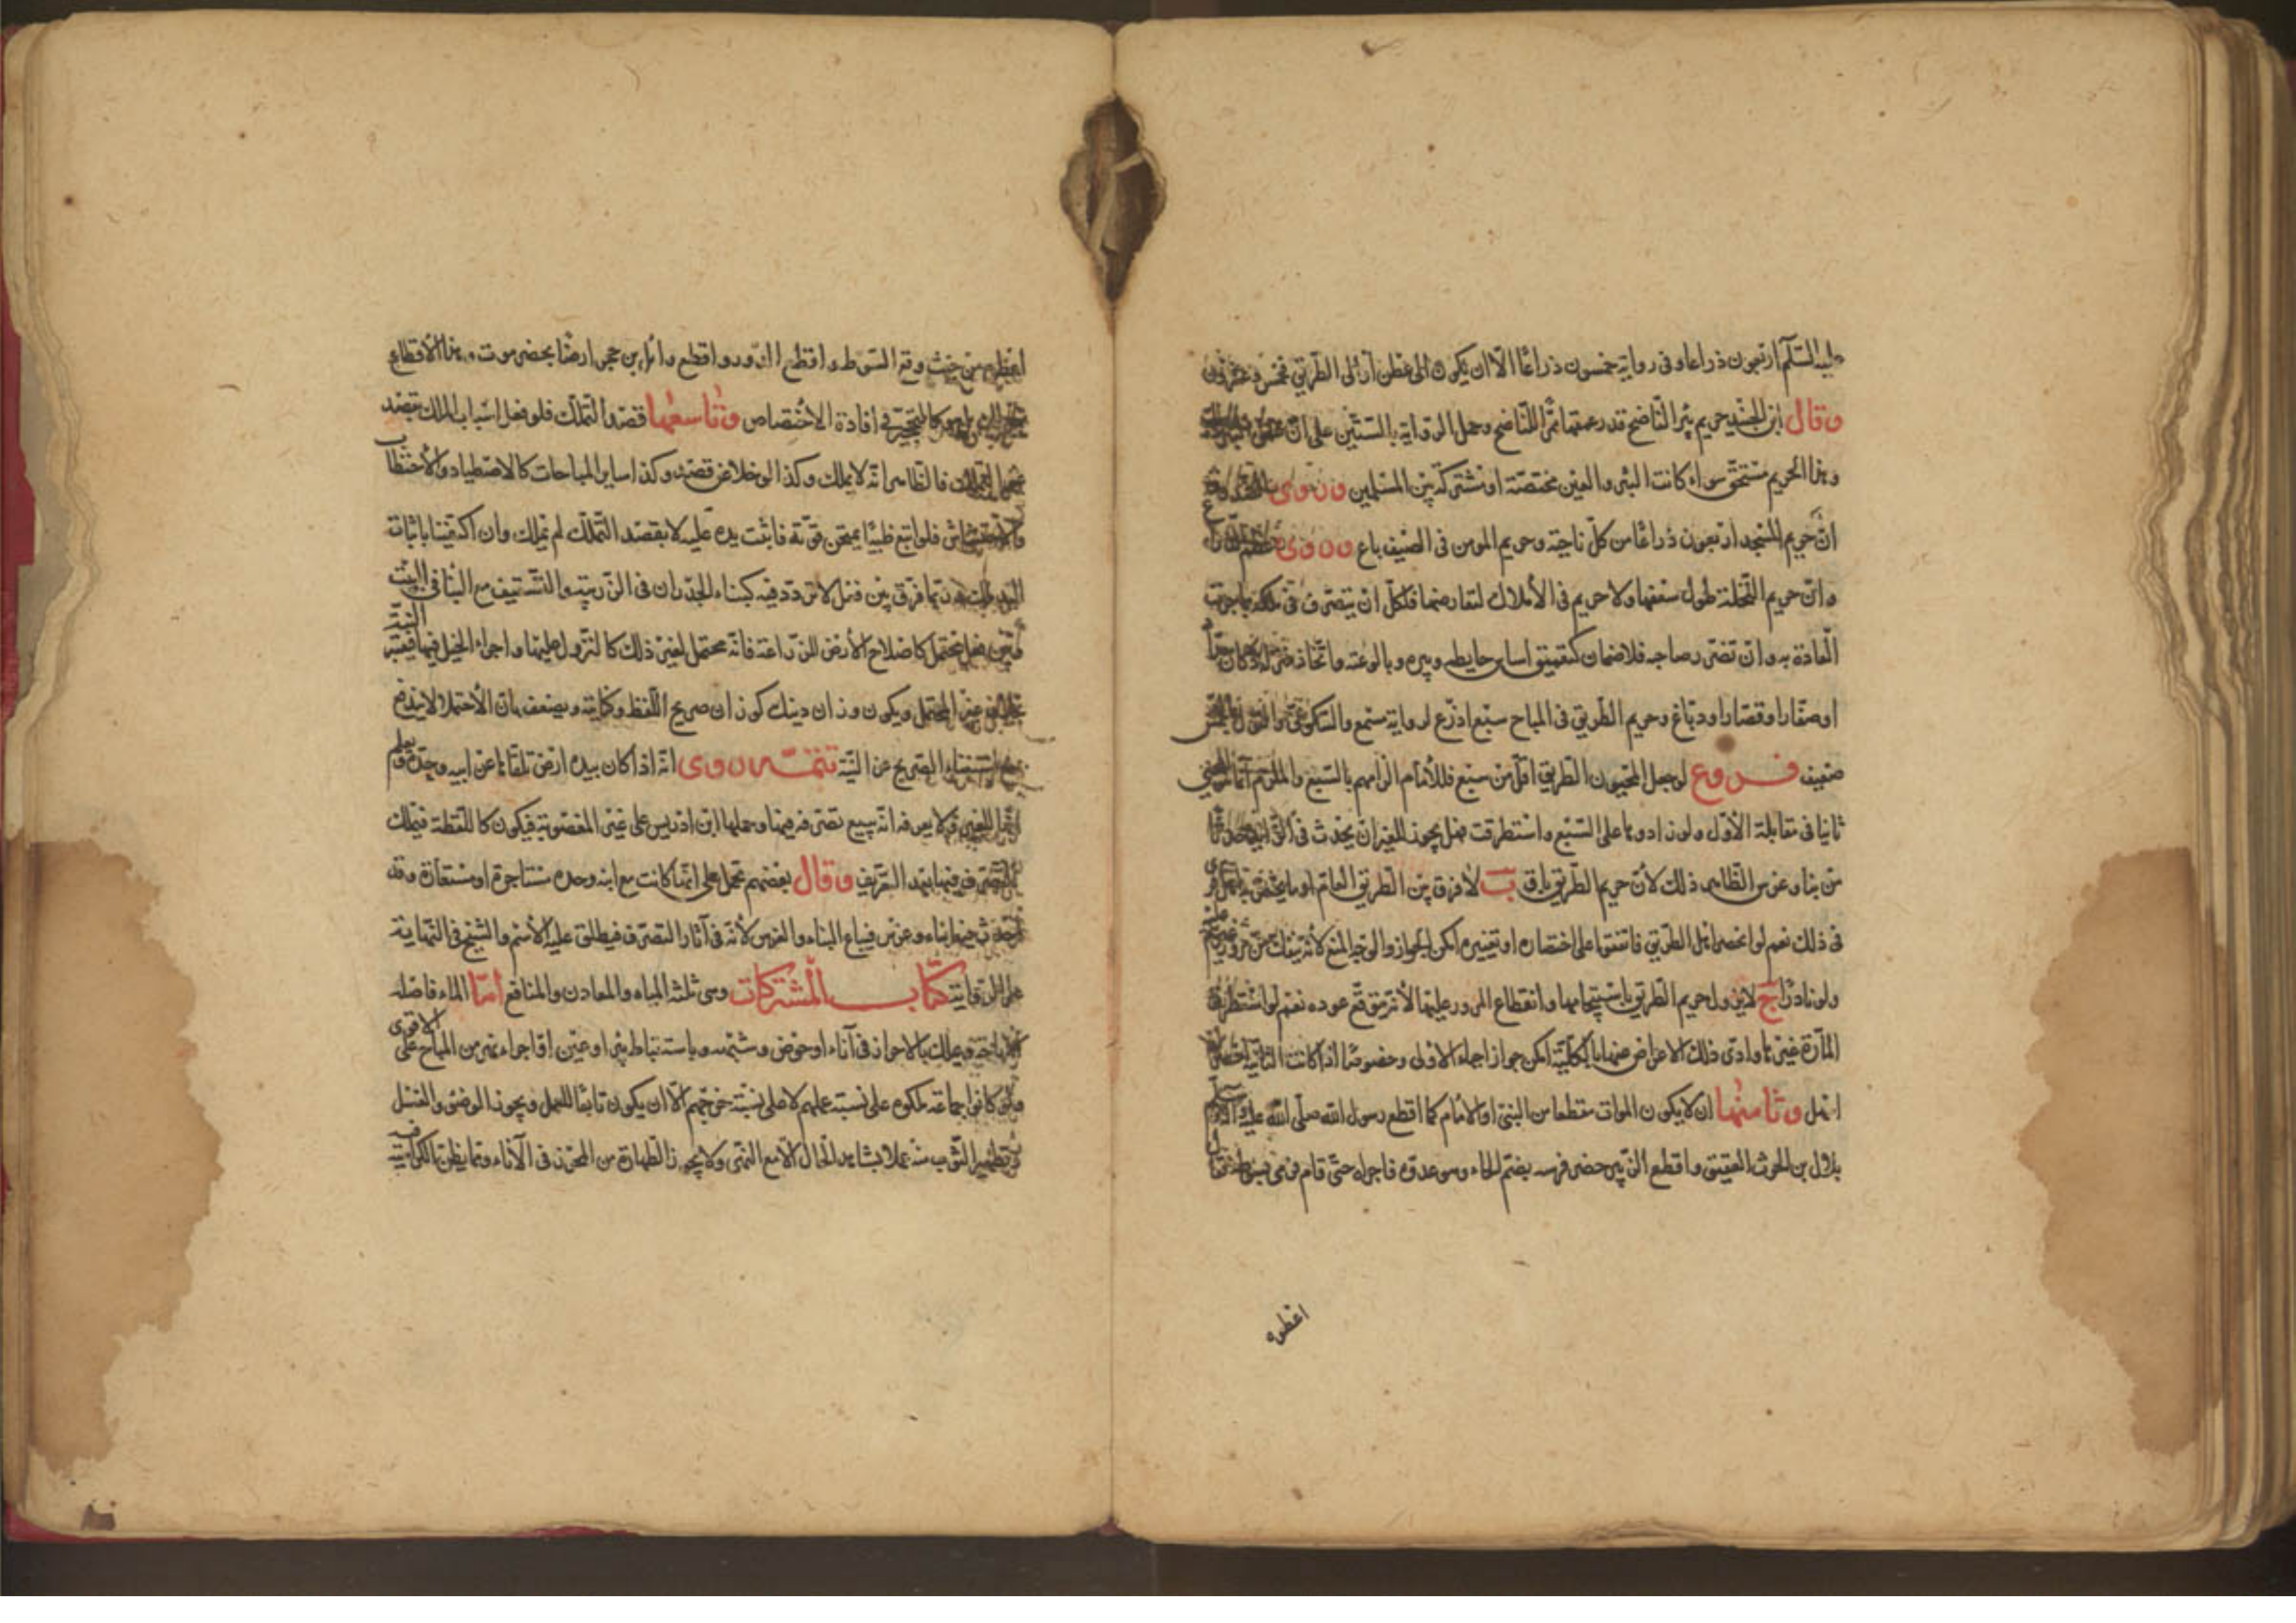 عليه السلام اربعون ذراعا وفى رواية خمسون ذراعًا الّا ان يكون الى عطن او الى الطّريق فخمس وعشرون
وقال ابن الجنيد حريم بئر النّاضح قدر عمقها ممرّا للنّاضح وحمل الرّواية بالستّين على انّ عمق
وهذا الحريم مستحقّ سواء كانت البئر والعين مختصّة او مشتركة بين المسلمين وروى الصّدوق
انّ حريم المسجد اربعون ذراعًا من كلّ ناحية وحريم المومن فى الصّيف باع وروى عظم الذّراع
وانّ حريم النّخلة طول سعفها ولا حريم فى الأملاك لتعارضها فلكلّ ان يتصرّف فى ملكه بما جرت
العادة به وان تضرّر صاحبه فلا ضمان كتعميق اساس حايطه وبيره وبالوعته واتّخاذ منزله دكان حدّاد
او صفّار او قصّار او دبّاغ وحريم الطّريق فى المباح سبع اذرع لرواية مسمع والسّكونى والقول بالخمس
ضعيف فروع لو جعل المحيون الطّريق اقلّ من سبع فللأمام الزامهم بالسّبع والملزم انّما
ثانيا فى مقابلة الأوّل ولو زادوها على السّبع واستطرقت فهل يجوز للغير ان يحدث فى الزّايد حدثًا
من بناء وغرس الظّاهر ذلك لأنّ حريم الطّريق باق ب لا فرق بين الطّريق العام او ما يختصّ به اهل قرى
فى ذلك نعم لو انحصر اهل الطّريق فاتّفقوا على اختصاره او تغييره امكن الجواز والوجه المنع لأنّه لا ينفك من مرور غيرهم عليه
ولو نادرًا ج لا يزول حريم الطّريق باستيجامها وانقطاع المرور عليها لأنّه يتوقّع عوده نعم لو استطرق
المارّة غيرها وادّى ذلك الاعراض عنها بالكليّة امكن جواز احياء الأولى وخصوصًا اذا كانت الثانية اخصر
اسهل وثامنها ان لا يكون الموات مقطعا من النبىّ او الأمام كما اقطع رسول الله صلّى الله عليه وآله وسلّم
بلال بن الحرث العقيق واقطع الزّبير حضر فرسه بضمّ الحاء وهو عدوه فاجراه حتّى قام فرمى بسوطه فقال
اعطوه
اعطوه من حيث وقع السّوط واقطع الدّور واقطع وائل بن حجر ارضًا بحضرموت وهذا الأقطاع
كالتّحجير فى افادة الاختصاص وتاسعها قصد التّملّك فلو فعل اسباب الملك بقصد
غير التّملّك فالظّاهر انّه لا يملك وكذا لو خلا عن قصد وكذا ساير المباحات كالاصطياد والاحتطاب
والاحتشاش فلو اتبع ظبيًا يمتحن قوّته فاثبت يده عليه لا بقصد التّملّك لم يملك وان اكتفينا باثبات
اليد وربّما فرّق بين فعل لا تردّد فيه كبناء الجدران فى الزّريبة والتّسقيف مع البنا فى البيت
وبين فعل محتمل كاصلاح الأرض للزّراعة فانّه يحتمل لغير ذلك كالنّزول عليها واجراء الخيل فيها فيعتبر النّيّة
ويكون وزان ذينك كوزان صريح اللّفظ وكنايته ويضعف بانّ الأحتمال لا يندفع
استغناء الصّريح عن النّيّة تتمّة روى انّه اذا كان بيده ارض تلقّاها عن ابيه وجدّه ويعلم
انّها للغير ولا يعرفه انّه يبيع تصرّفه فيها وحملها ابن ادريس على غير المغصوبة فيكون كاللّقطة فيملك
التّصرّف فيها بعد التّعريف وقال بعضهم تحمل على انّها كانت مع ابيه وجدّه مستاجرة او مستعارة وقد
احدث فيها بناء وغرس فيباع البناء والغرس لأنّه فى آثار التصرّف فيطلق عليه الأسم والشّيخ فى النّهاية
على الرّواية كتاب المشتركات وهى ثلثة المياه والمعادن والمنافع امّا الماء فاصله
الأباحة ويملك بالاحراز فى آناء او حوض وشبهه وباستنباط بئر او عين او اجراء نهر من المباح على الاقوى
ولو كانوا جماعة ملكوه على نسبة عملهم لا على نسبة خرجهم الّا ان يكون تابعًا للعمل ويجوز الوضوء والغسل
وتطهير الثّوب منه عملا بشاهد الحال الّا مع النّهى ولا يجوز الطهارة من المحرز فى الآناء وممّا يظنّ الكراهية فيه